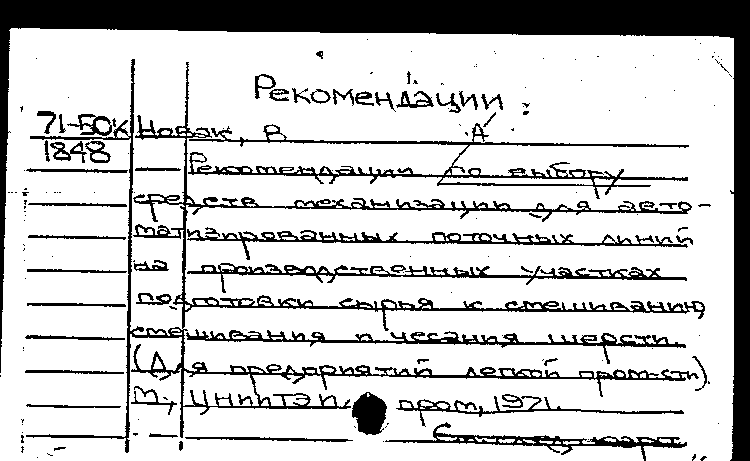 Рекомендации :
71-БОК Новак, В А
1848
Рекомендации по выбору
средств механизации для авто-
матизированных поточных линий
на производственных участках
подготовки сырья к смешиванию,
смешивания и чесания шерсти.
(Для предприятий легкой пром-сти).
М., ЦНИИТЭИ пром, 1971.